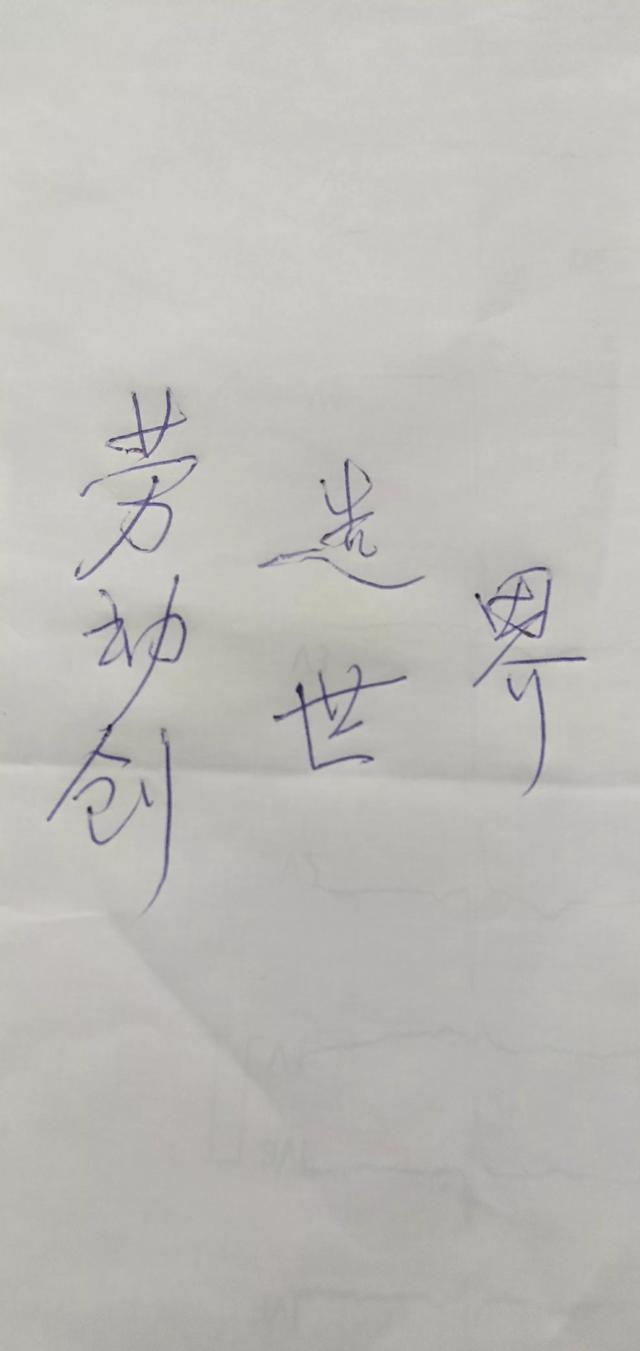 劳动创
造世
界